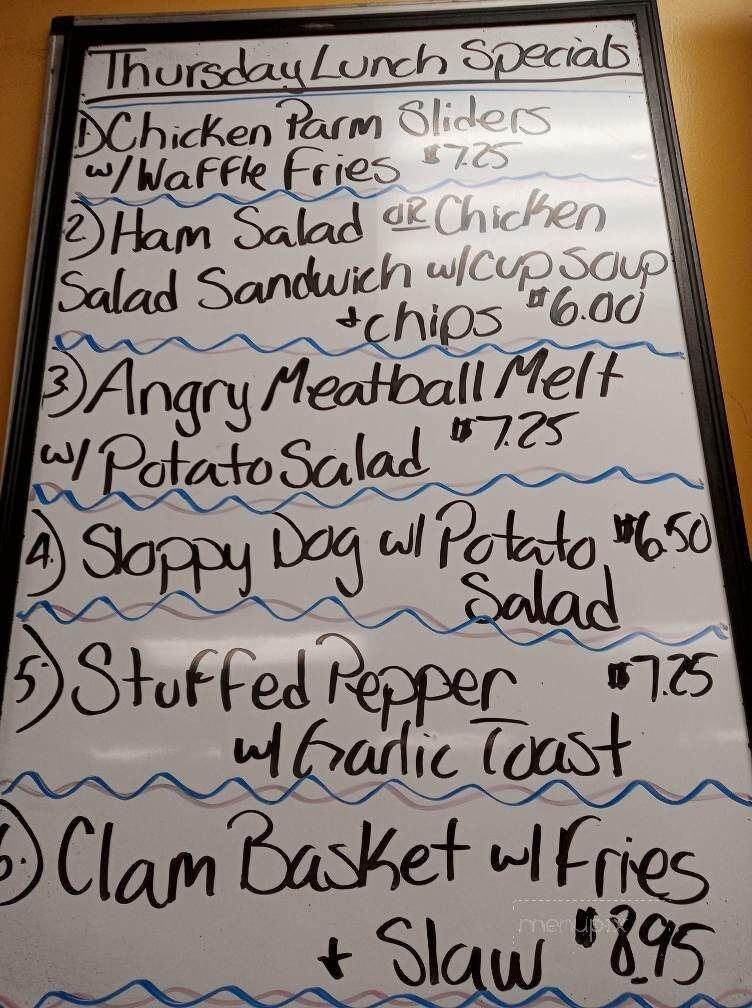 Thursday Lunch Specials
1.) Chicken Parm Sliders
w/ Waffle Fries $7.25
2.) Ham Salad OR Chicken
Salad Sandwich w/ Cup Soup
+ chips $6.00
3.) Angry Meatball Melt
w/ Potato Salad $7.25
4.) Sloppy Dog w/ Potato $6.50
Salad
5.) Stuffed Pepper $7.25
w/ Garlic Toast
6.) Clam Basket w/ Fries
menupix
+ Slaw $8.95